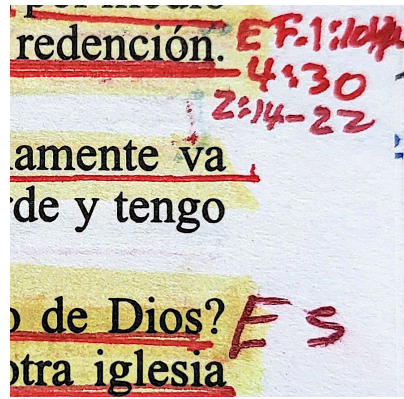 redención. EF.1:
4:30
2:14-22
amente va
de y tengo
de Dios? ES
otra iglesia